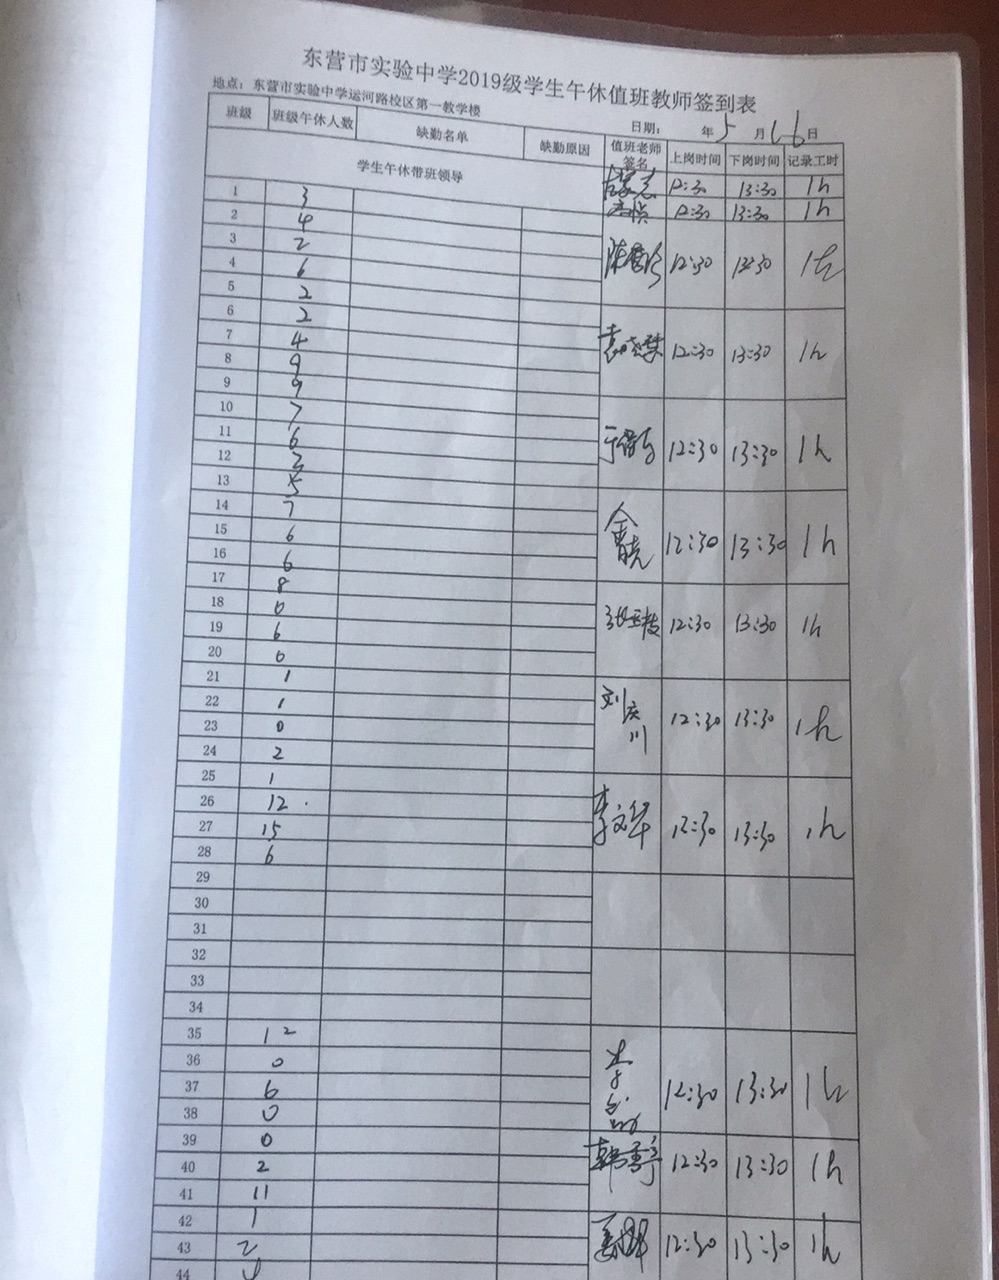 东营市实验中学2019级学生午休值班教师签到表
地点：东营市实验中学运河路校区第一教学楼 日期： 年5月 日
班级 班级午休人数 缺勤名单 缺勤原因 值班老师签名 上岗时间 下岗时间 记录工时
学生午休带班领导 12:30 13:30 1h
12:30 13:30 1h
1 3
2 4
3 2 12:30 13:30 1h
4 6
5 2
6 2
7 4 12:30 13:30 1h
8 9
9 9
10 7
11 6 12:30 13:30 1h
12 2
13 5
14 7
15 6 12:30 13:30 1h
16 6
17 8
18 0
19 6 12:30 13:30 1h
20 0
21 1
22 1 刘庆川 12:30 13:30 1h
23 0
24 2
25 1
26 12 李文华 12:30 13:30 1h
27 15
28 6
29
30
31
32
33
34
35 12
36 0
37 6 12:30 13:30 1h
38 0
39 0
40 2 12:30 13:30 1h
41 11
42 1
43 2 12:30 13:30 1h
44